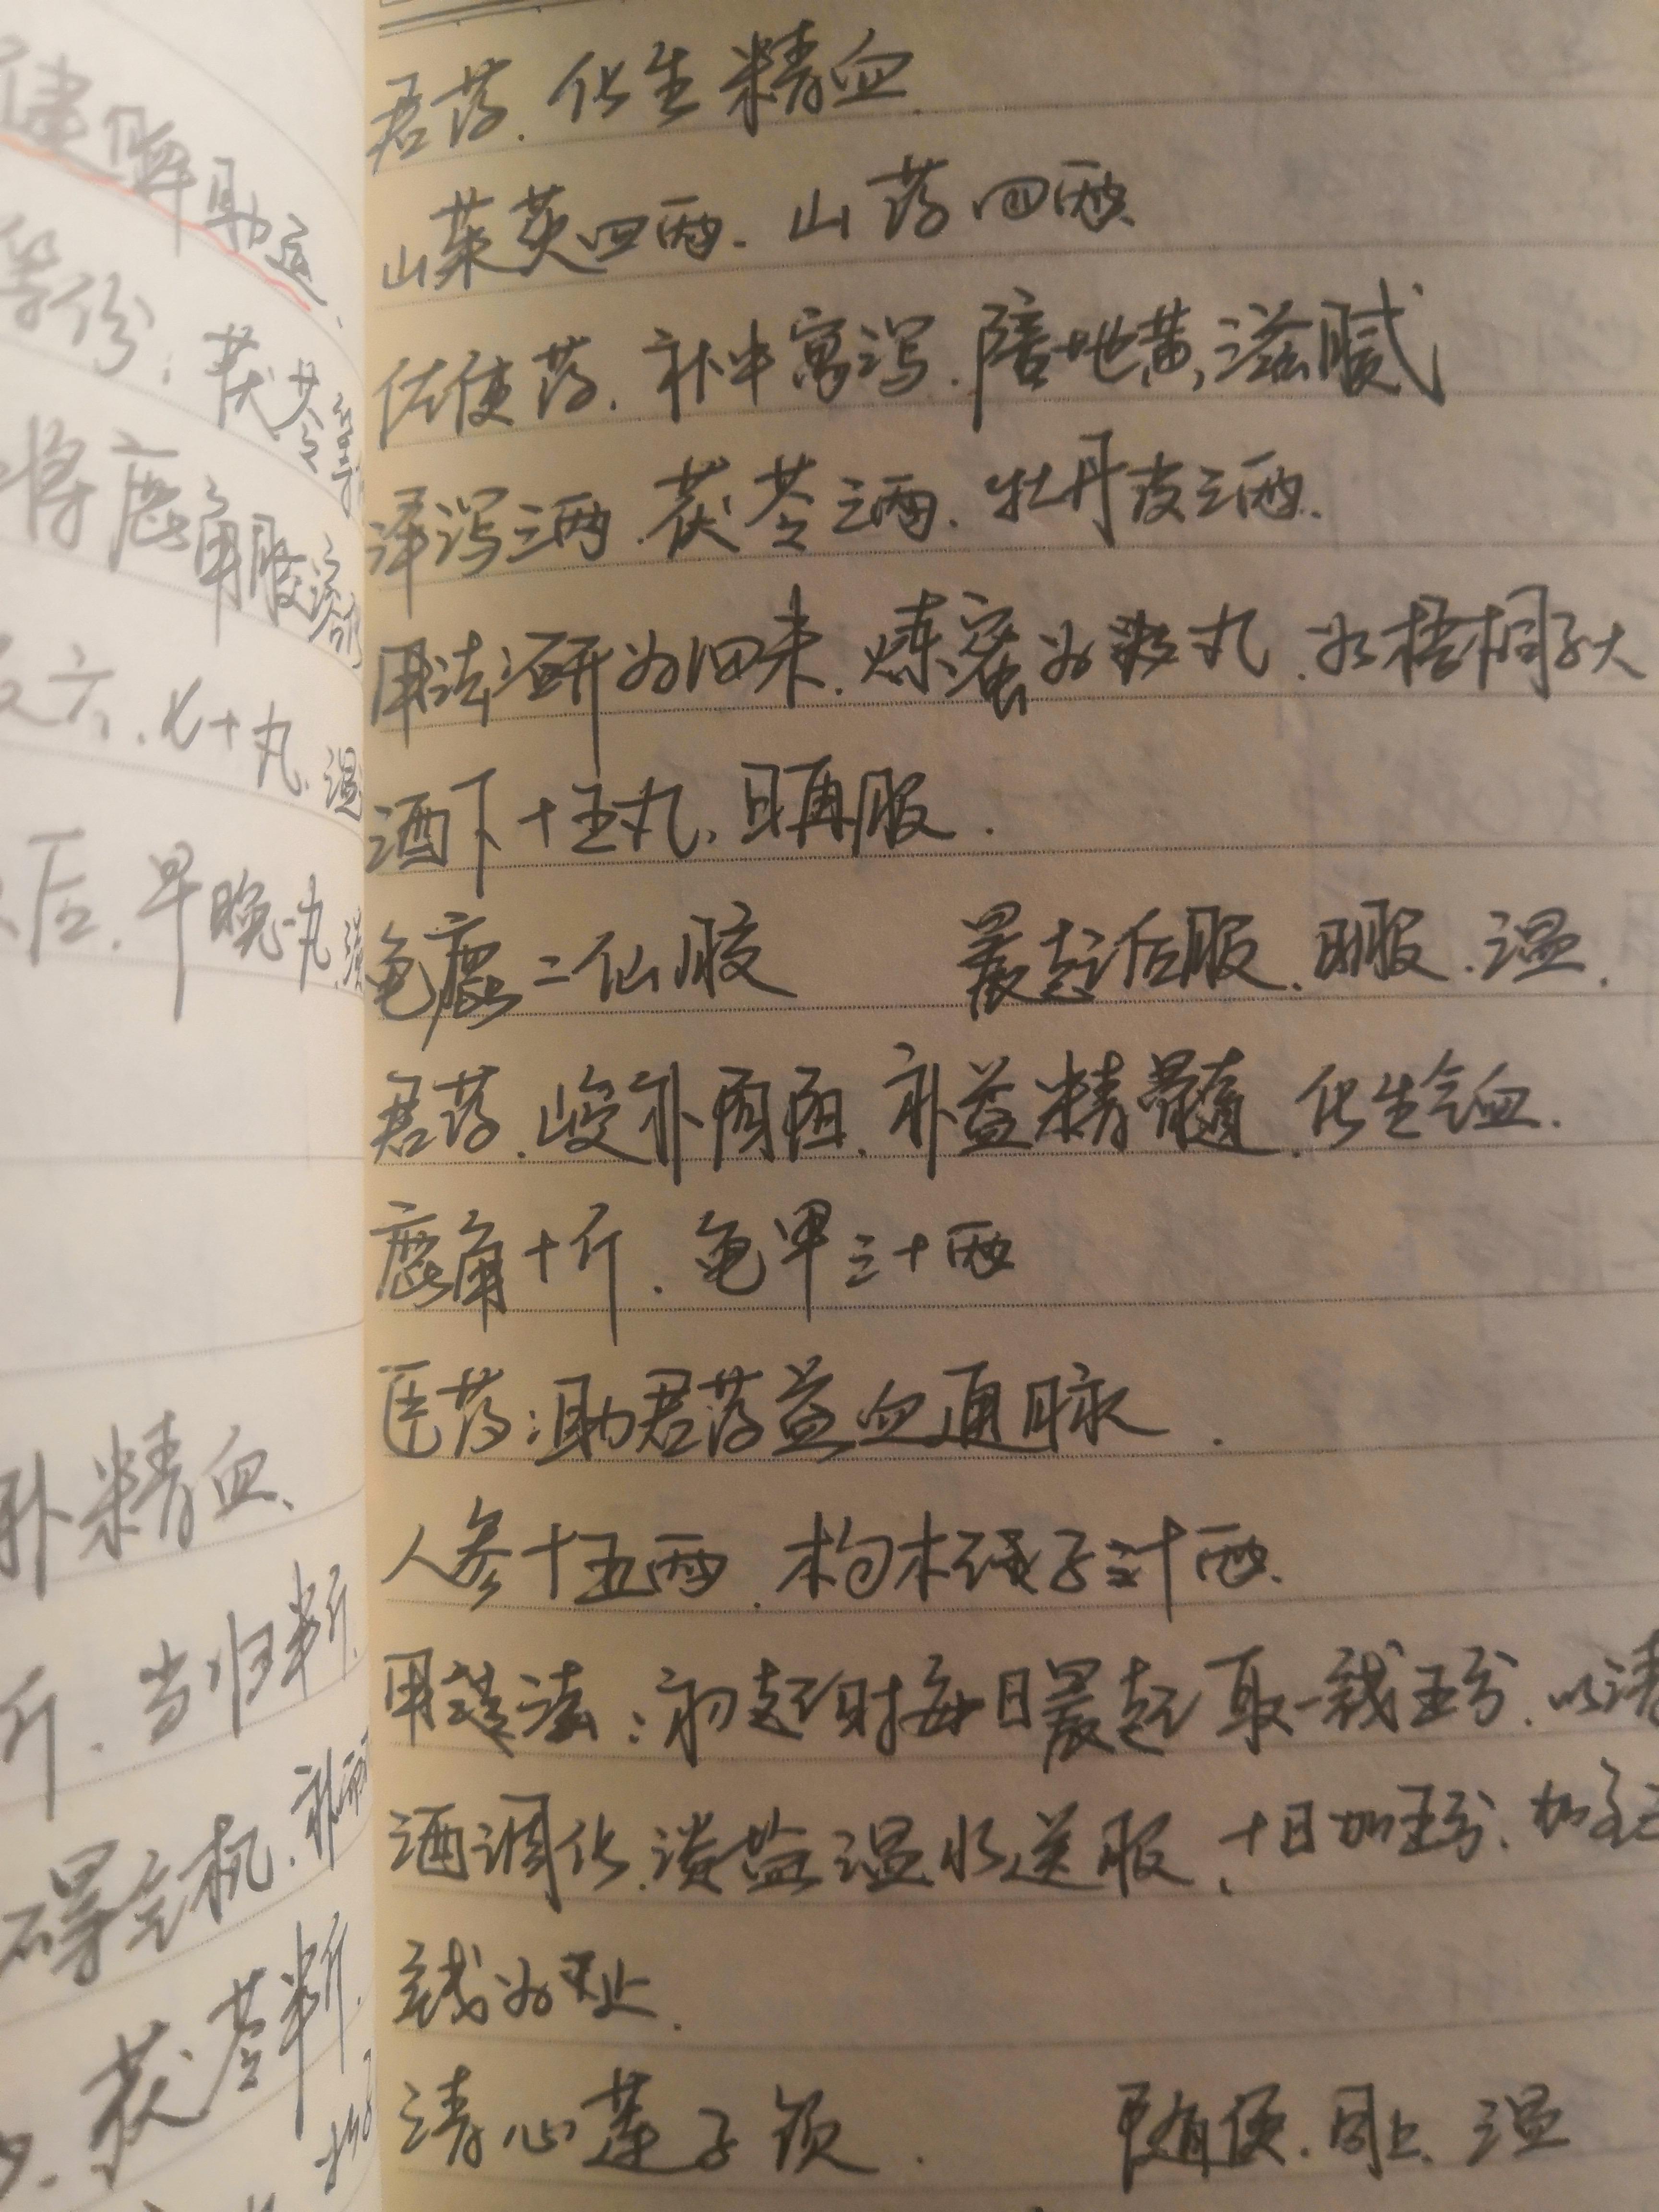 健脾助运、
等份：茯苓
将鹿角胶溶
六、七十丸、温
后、早晚一丸、
补精血、
斤、当归半斤、
碍气机、补两
茯苓半斤、
君药、化生精血
山茱萸四两、山药四两
佐使药、补中寓泻、陪地黄滋腻
泽泻三两、茯苓三两、牡丹皮三两、
用法：研为细末、炼蜜为丸、如梧桐子大
酒下十五丸、日再服、
龟鹿二仙胶 晨起后服、日服、温、
君药、峻补阴阳、补益精髓、化生气血、
鹿角十斤、龟甲三十两
臣药：助君药益血通脉、
人参十五两、枸杞子三十两、
用法：初起时每日晨起取一钱五分、以清
酒调化、淡盐温水送服、十日加五分、加至三
钱为止、
清心莲子饮、 随便、同上、温